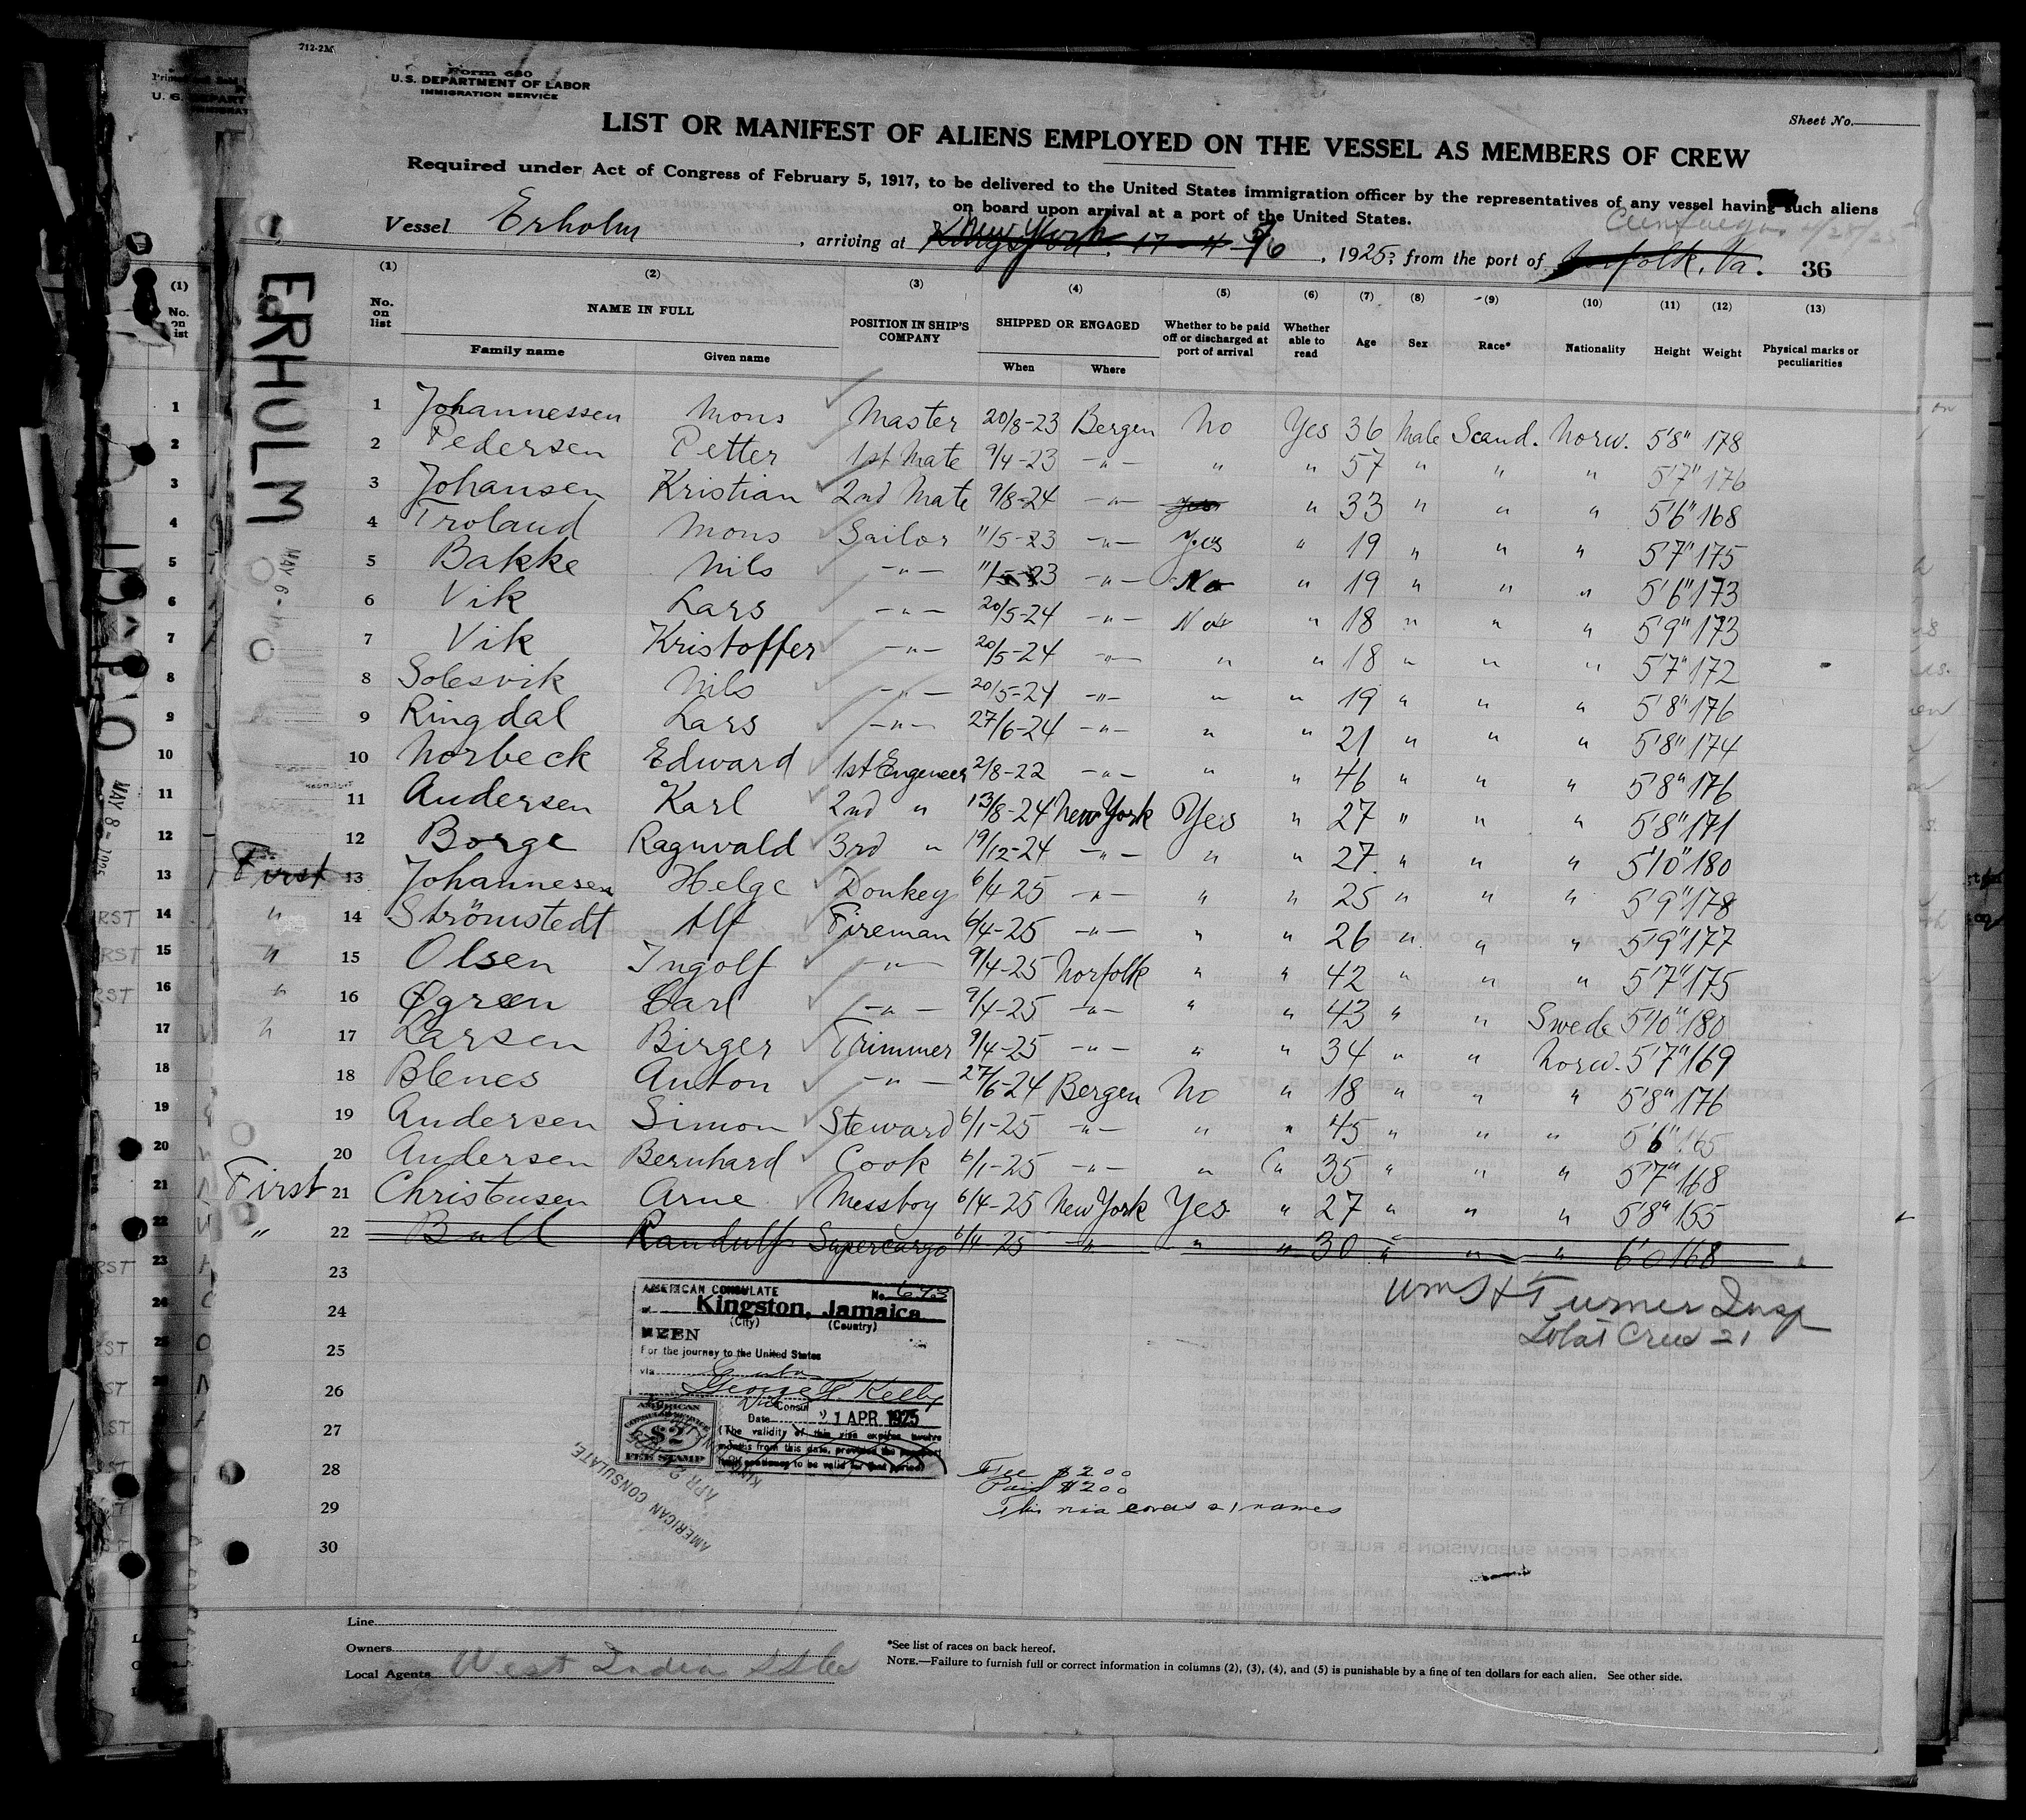 712-2M
Form 680
U.S. DEPARTMENT OF LABOR
IMMIGRATION SERVICE
Sheet No.
LIST OR MANIFEST OF ALIENS EMPLOYED ON THE VESSEL AS MEMBERS OF CREW
Required under Act of Congress of February 5, 1917, to be delivered to the United States immigration officer by the representatives of any vessel having such aliens
on board upon arrival at a port of the United States.
Cienfuegos 4/28/25
Vessel Erholm, arriving at New York 5/6, 1925, from the port of Norfolk, Va. 36
ERHOLM
MAY 6 -
(1) (2) (3) (4) (5) (6) (7) (8) (9) (10) (11) (12) (13)
No. on list NAME IN FULL POSITION IN SHIP'S COMPANY SHIPPED OR ENGAGED Whether to be paid off or discharged at port of arrival Whether able to read Age Sex Race* Nationality Height Weight Physical marks or peculiarities
Family name Given name When Where
1 Johannessen Mons Master 20/8-23 Bergen No Yes 36 Male Scand. Norw. 5'8" 178
2 Pedersen Petter 1st Mate 9/4-23 -"- " " 57 " " " 5'7" 176
3 Johansen Kristian 2nd Mate 9/8-24 -"- Yes " 33 " " " 5'6" 168
4 Troland Mons Sailor 11/5-23 -"- Yes " 19 " " " 5'7" 175
5 Bakke Nils -"- 11/5-23 -"- No " 19 " " " 5'6" 173
6 Vik Lars -"- 20/5-24 -"- No " 18 " " " 5'9" 173
7 Vik Kristoffer -"- 20/5-24 -"- " " 18 " " " 5'7" 172
8 Solesvik Nils -"- 20/5-24 -"- " " 19 " " " 5'8" 176
9 Ringdal Lars -"- 27/6-24 -"- " " 21 " " " 5'8" 174
10 Norbeck Edward 1st Engeneer 2/8-22 -"- " " 46 " " " 5'8" 176
11 Andersen Karl 2nd " 13/8-24 New York Yes " 27 " " " 5'8" 171
12 Borge Ragnvald 3rd " 19/12-24 -"- " " 27 " " " 5'10" 180
First 13 Johannesen Helge Donkey 6/4-25 -"- " " 25 " " " 5'9" 178
" 14 Strömstedt Alf Fireman 6/4-25 -"- " " 26 " " " 5'9" 177
" 15 Olsen Ingolf -"- 9/4-25 Norfolk " " 42 " " " 5'7" 175
" 16 Øgreen Carl -"- 9/4-25 -"- " " 43 " " Swede 5'10" 180
" 17 Larsen Birger Trimmer 9/4-25 -"- " " 34 " " Norw. 5'7" 169
18 Blenes Anton -"- 27/6-24 Bergen No " 18 " " " 5'8" 176
19 Andersen Simon Steward 6/1-25 -"- " " 45 " " " 5'6" 165
20 Andersen Bernhard Cook 6/1-25 -"- " " 35 " " " 5'7" 168
First 21 Christensen Arne Messboy 6/4-25 New York Yes " 27 " " " 5'8" 155
" 22 Bull Randulf Supercargo 6/4-25 -"- " " 30 " " " 6'0 168
23
24
25
26
27
28
29
30
Wm H Turner Insp
Total Crew 21
AMERICAN CONSULATE No. 673
at Kingston, Jamaica
(City) (Country)
SEEN
For the journey to the United States
via Cuba
George F. Kelly
Vice Consul
Date 21 APR 1925
(The validity of this visa expires twelve
months from this date, provided the passport
itself continues to be valid for that period)
AMERICAN
CONSULAR SERVICE
$2
FEE STAMP
AMERICAN CONSULATE,
Fee $2.00
Paid $2.00
This visa covers 21 names
Line
Owners
Local Agents West India SS Co
*See list of races on back hereof.
NOTE.—Failure to furnish full or correct information in columns (2), (3), (4), and (5) is punishable by a fine of ten dollars for each alien. See other side.